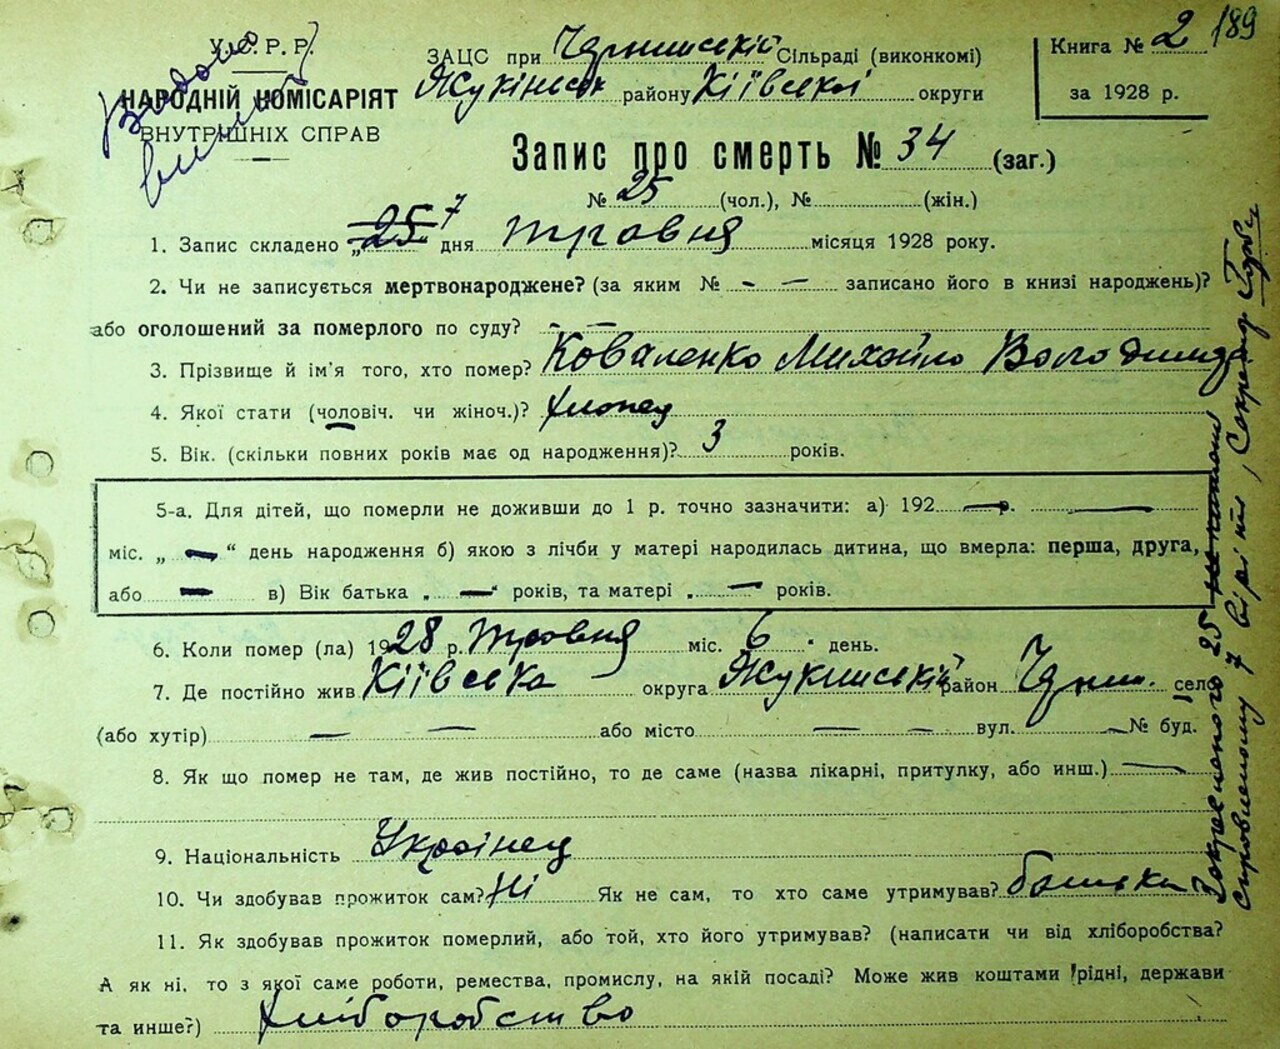 189
У.С.Р.Р.
НАРОДНІЙ КОМІСАРІЯТ
ВНУТРІШНІХ СПРАВ
ЗАЦС при Сільраді (виконкомі)
району Київської округи
Книга № 2
за 1928 р.
Запис про смерть № 34 (заг.)
№ 25 (чол.), № (жін.)
1. Запис складено „25 7 дня травня місяця 1928 року.
2. Чи не записується мертвонароджене? (за яким № - — записано його в книзі народжень)?
або оголошений за померлого по суду? — —
3. Прізвище й ім'я того, хто помер? Коваленко Михайло
4. Якої стати (чоловіч. чи жіноч.)? хлопец
5. Вік. (скільки повних років має од народження)? 3 років.
5-а. Для дітей, що померли не доживши до 1 р. точно зазначити: а) 192 — р. —
міс. „ — “ день народження б) якою з лічби у матері народилась дитина, що вмерла: перша, друга,
або — в) Вік батька „ — “ років, та матері „ — років.
6. Коли помер (ла) 1928 р. травня міс. 6 день.
7. Де постійно жив Київська округа район село
(або хутір) — — або місто — — вул. — № буд.
8. Як що помер не там, де жив постійно, то де саме (назва лікарні, притулку, або инш.) —
9. Національність Українец
10. Чи здобував прожиток сам? Ні Як не сам, то хто саме утримував? батько
11. Як здобував прожиток померлий, або той, хто його утримував? (написати чи від хліборобства?
А як ні, то з якої саме роботи, ремества, промислу, на якій посаді? Може жив коштами рідні, держави
та инше?) хліборобство